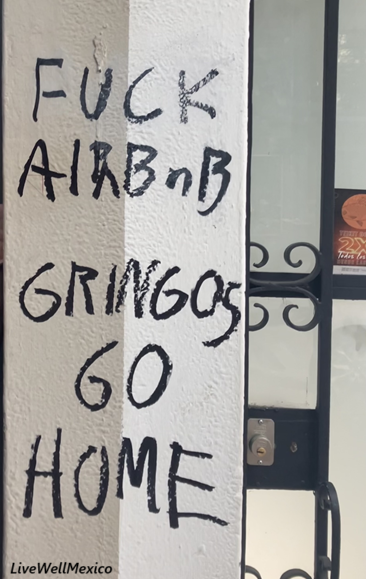 FUCK
AIRBnB
GRINGOS
GO
HOME
2X
LiveWellMexico